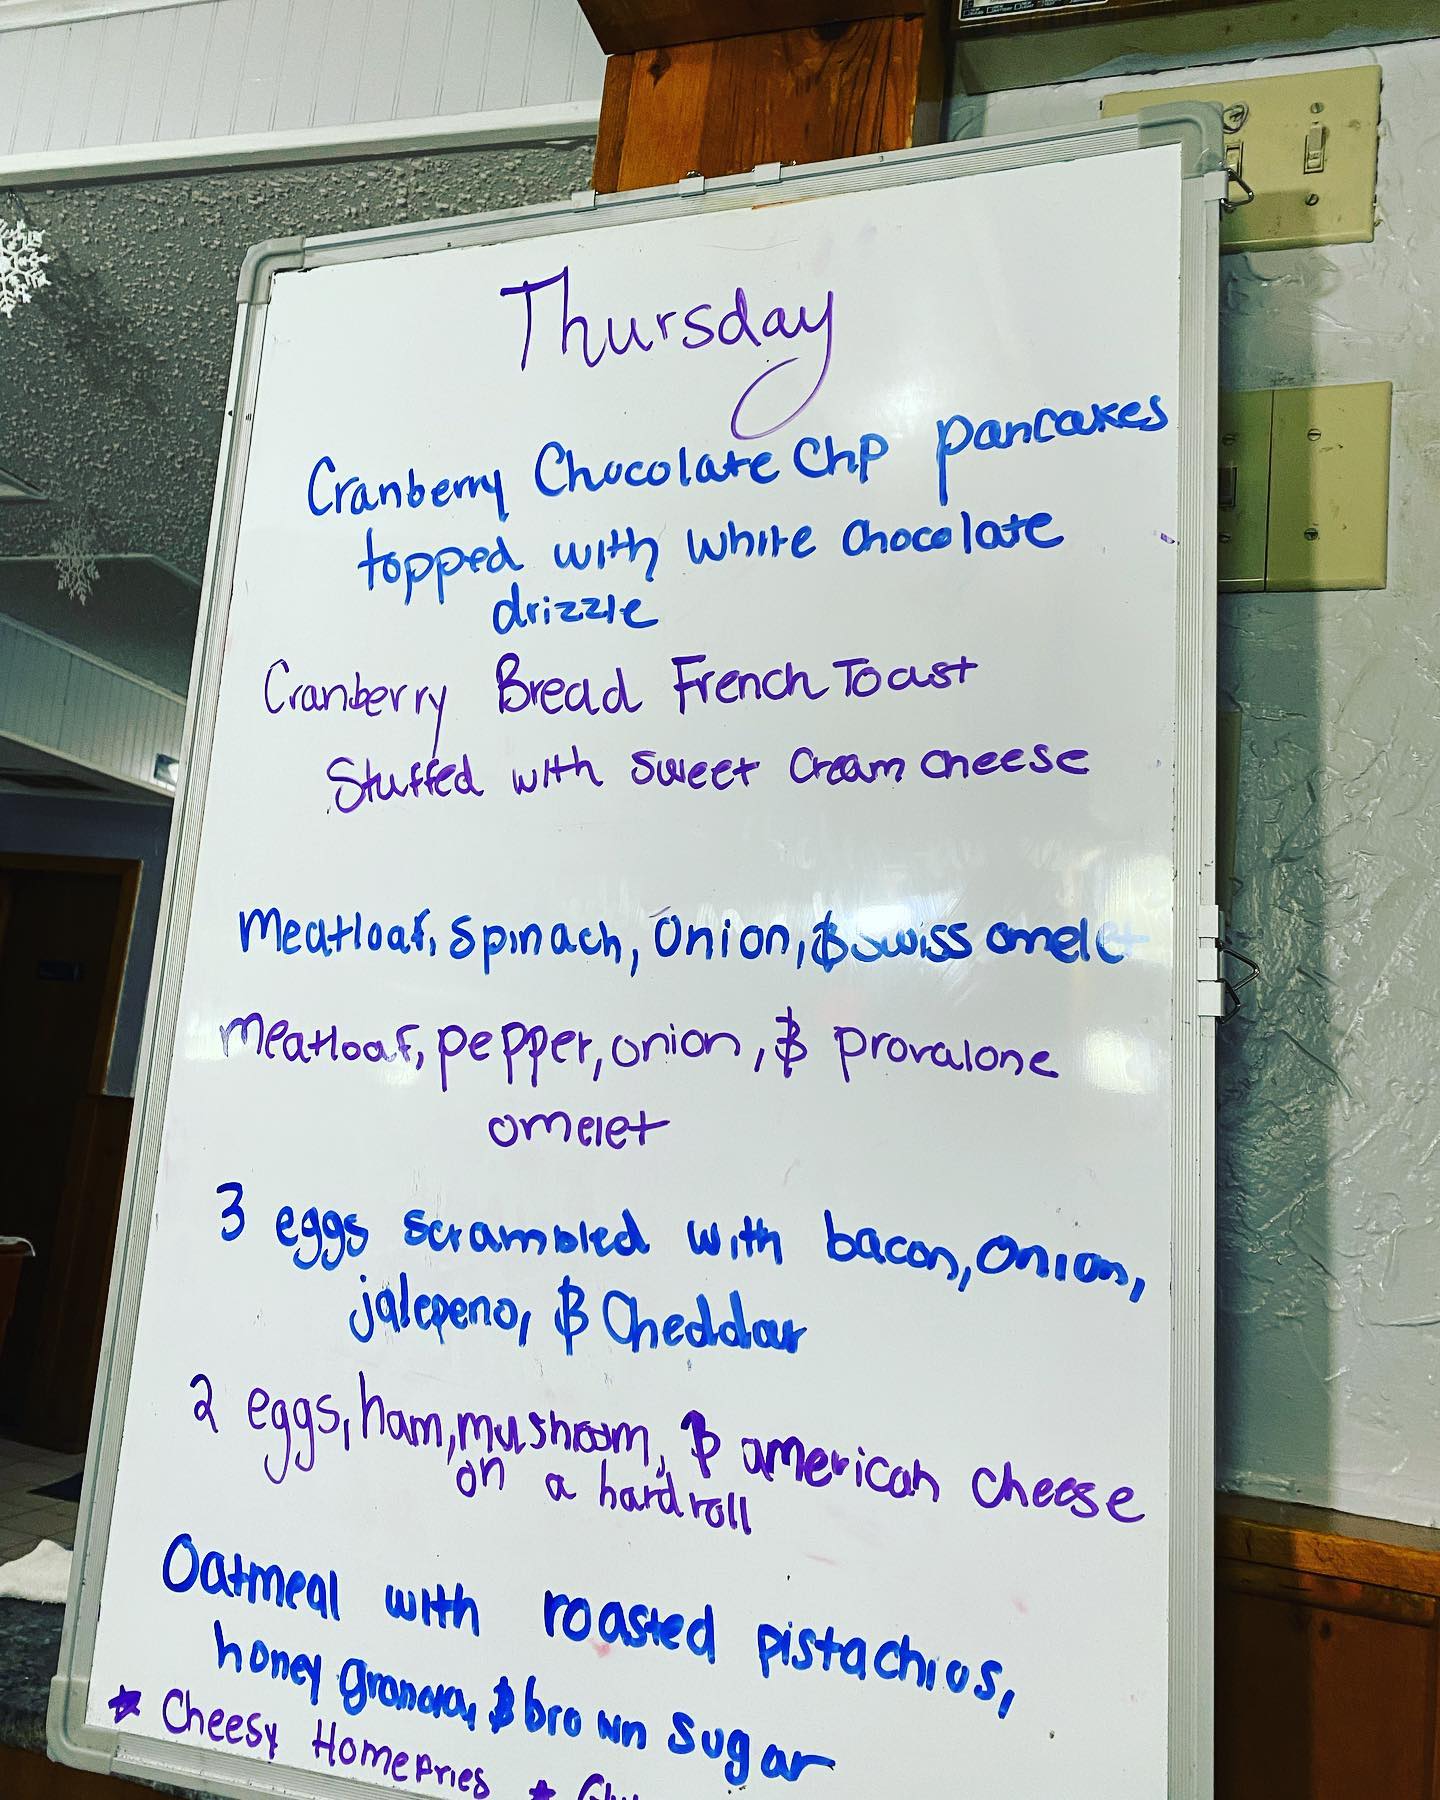 Thursday
Cranberry Chocolate Chip pancakes
topped with white chocolate
drizzle
Cranberry Bread French Toast
Stuffed with sweet cream cheese
meatloaf, spinach, onion, & swiss omelet
meatloaf, pepper, onion, & provalone
omelet
3 eggs scrambled with bacon, onion,
jalepeno, & cheddar
2 eggs, ham, mushroom, & american cheese
on a hard roll
Oatmeal with roasted pistachios,
honey granola, & brown sugar
★ Cheesy Homefries ★